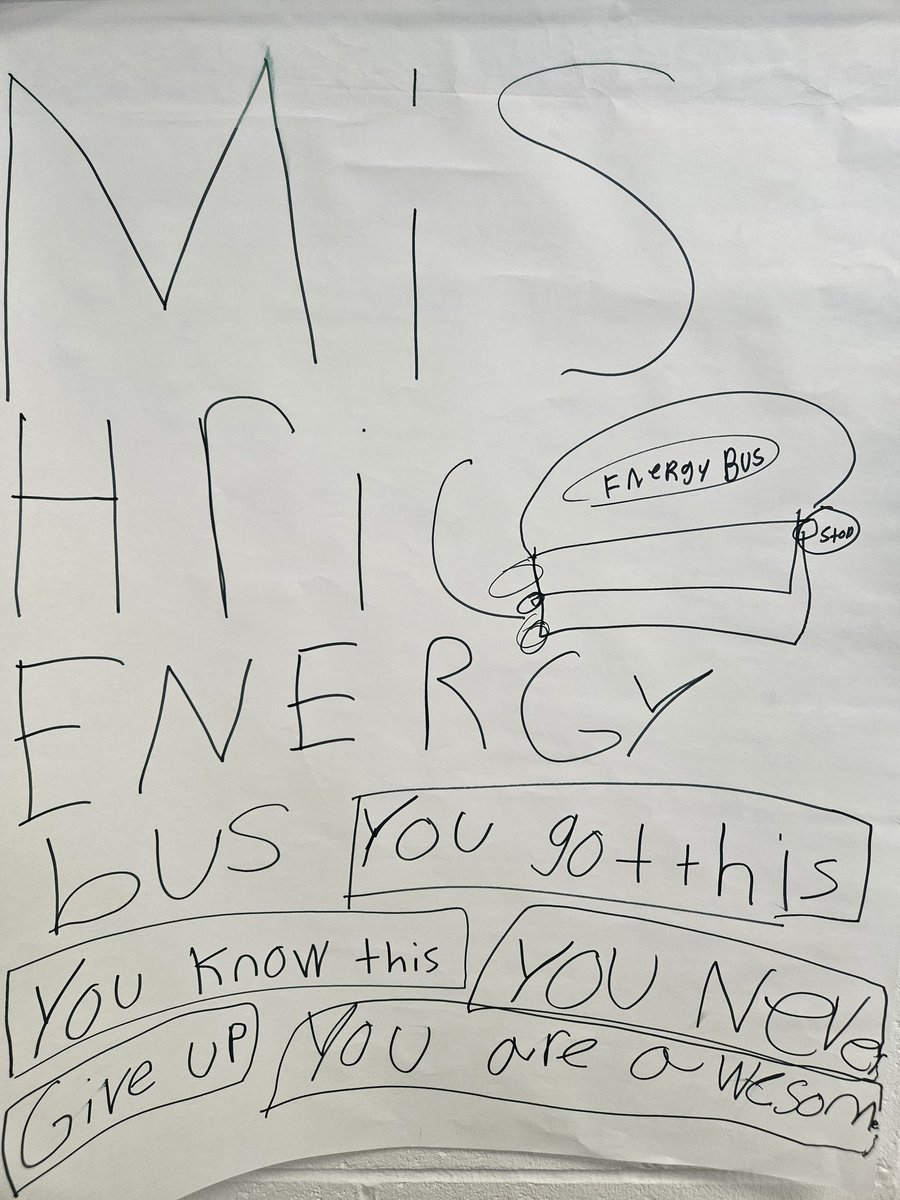 MiS
Hric
ENERGY BUS
STOP
ENERGY
bUS
YOU got this
YOU Know this
YOU Never
Give UP
YOU are awesome